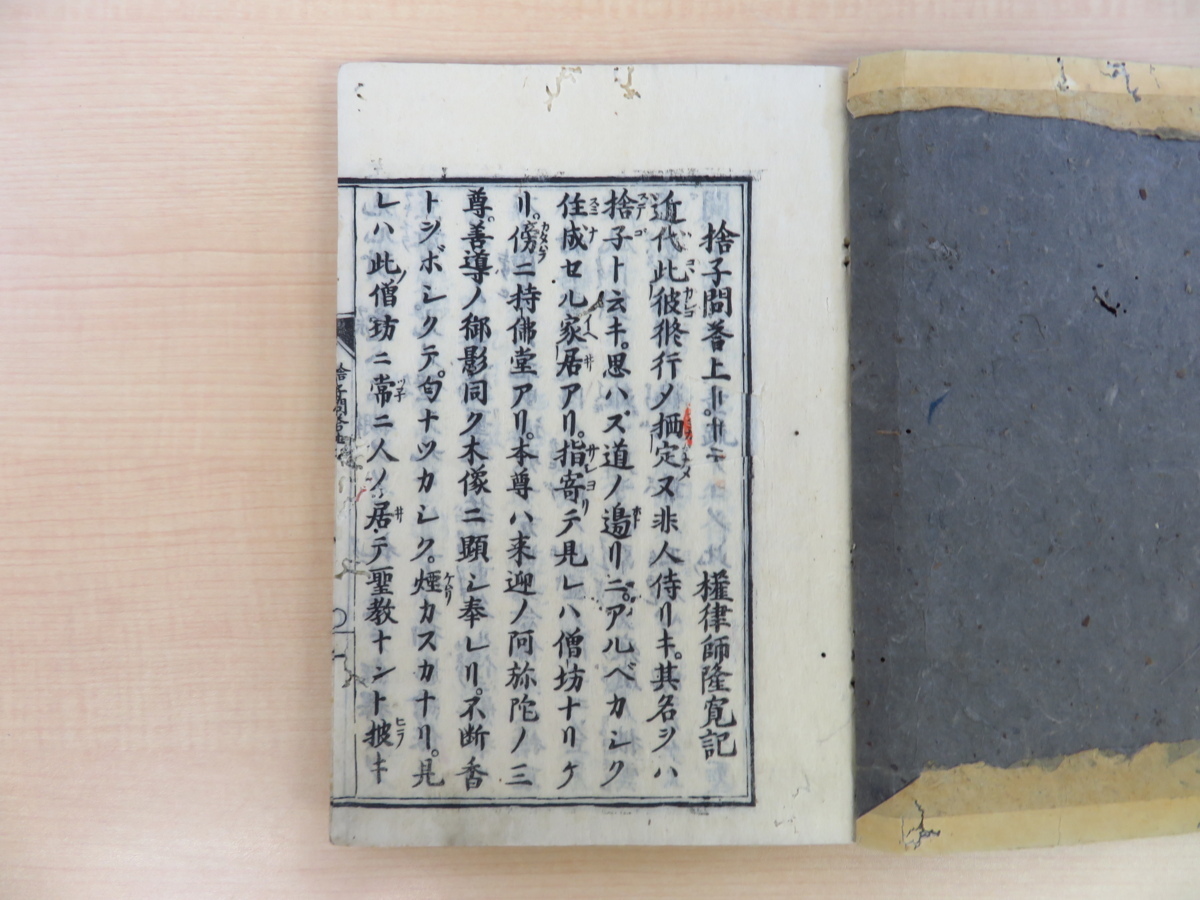 捨子問荅上 權律師隆寛記
近代此彼修行メ栖定又非人侍リキ。其名ヲハ
捨子ト云キ。思ハズ道ノ邊リニ。アルベカシク
住成セル家居アリ。指寄テ見レハ僧坊ナリケ
リ。傍ニ持佛堂アリ。本尊ハ来迎ノ阿弥陀ノ三
尊。善導ノ御影同ク木像ニ顕シ奉レリ。不断香
トシボシクテ。匂ナツカシク。煙カスカナリ。見
レハ此僧坊ニ常ニ人ノ居テ聖教ナント披キ